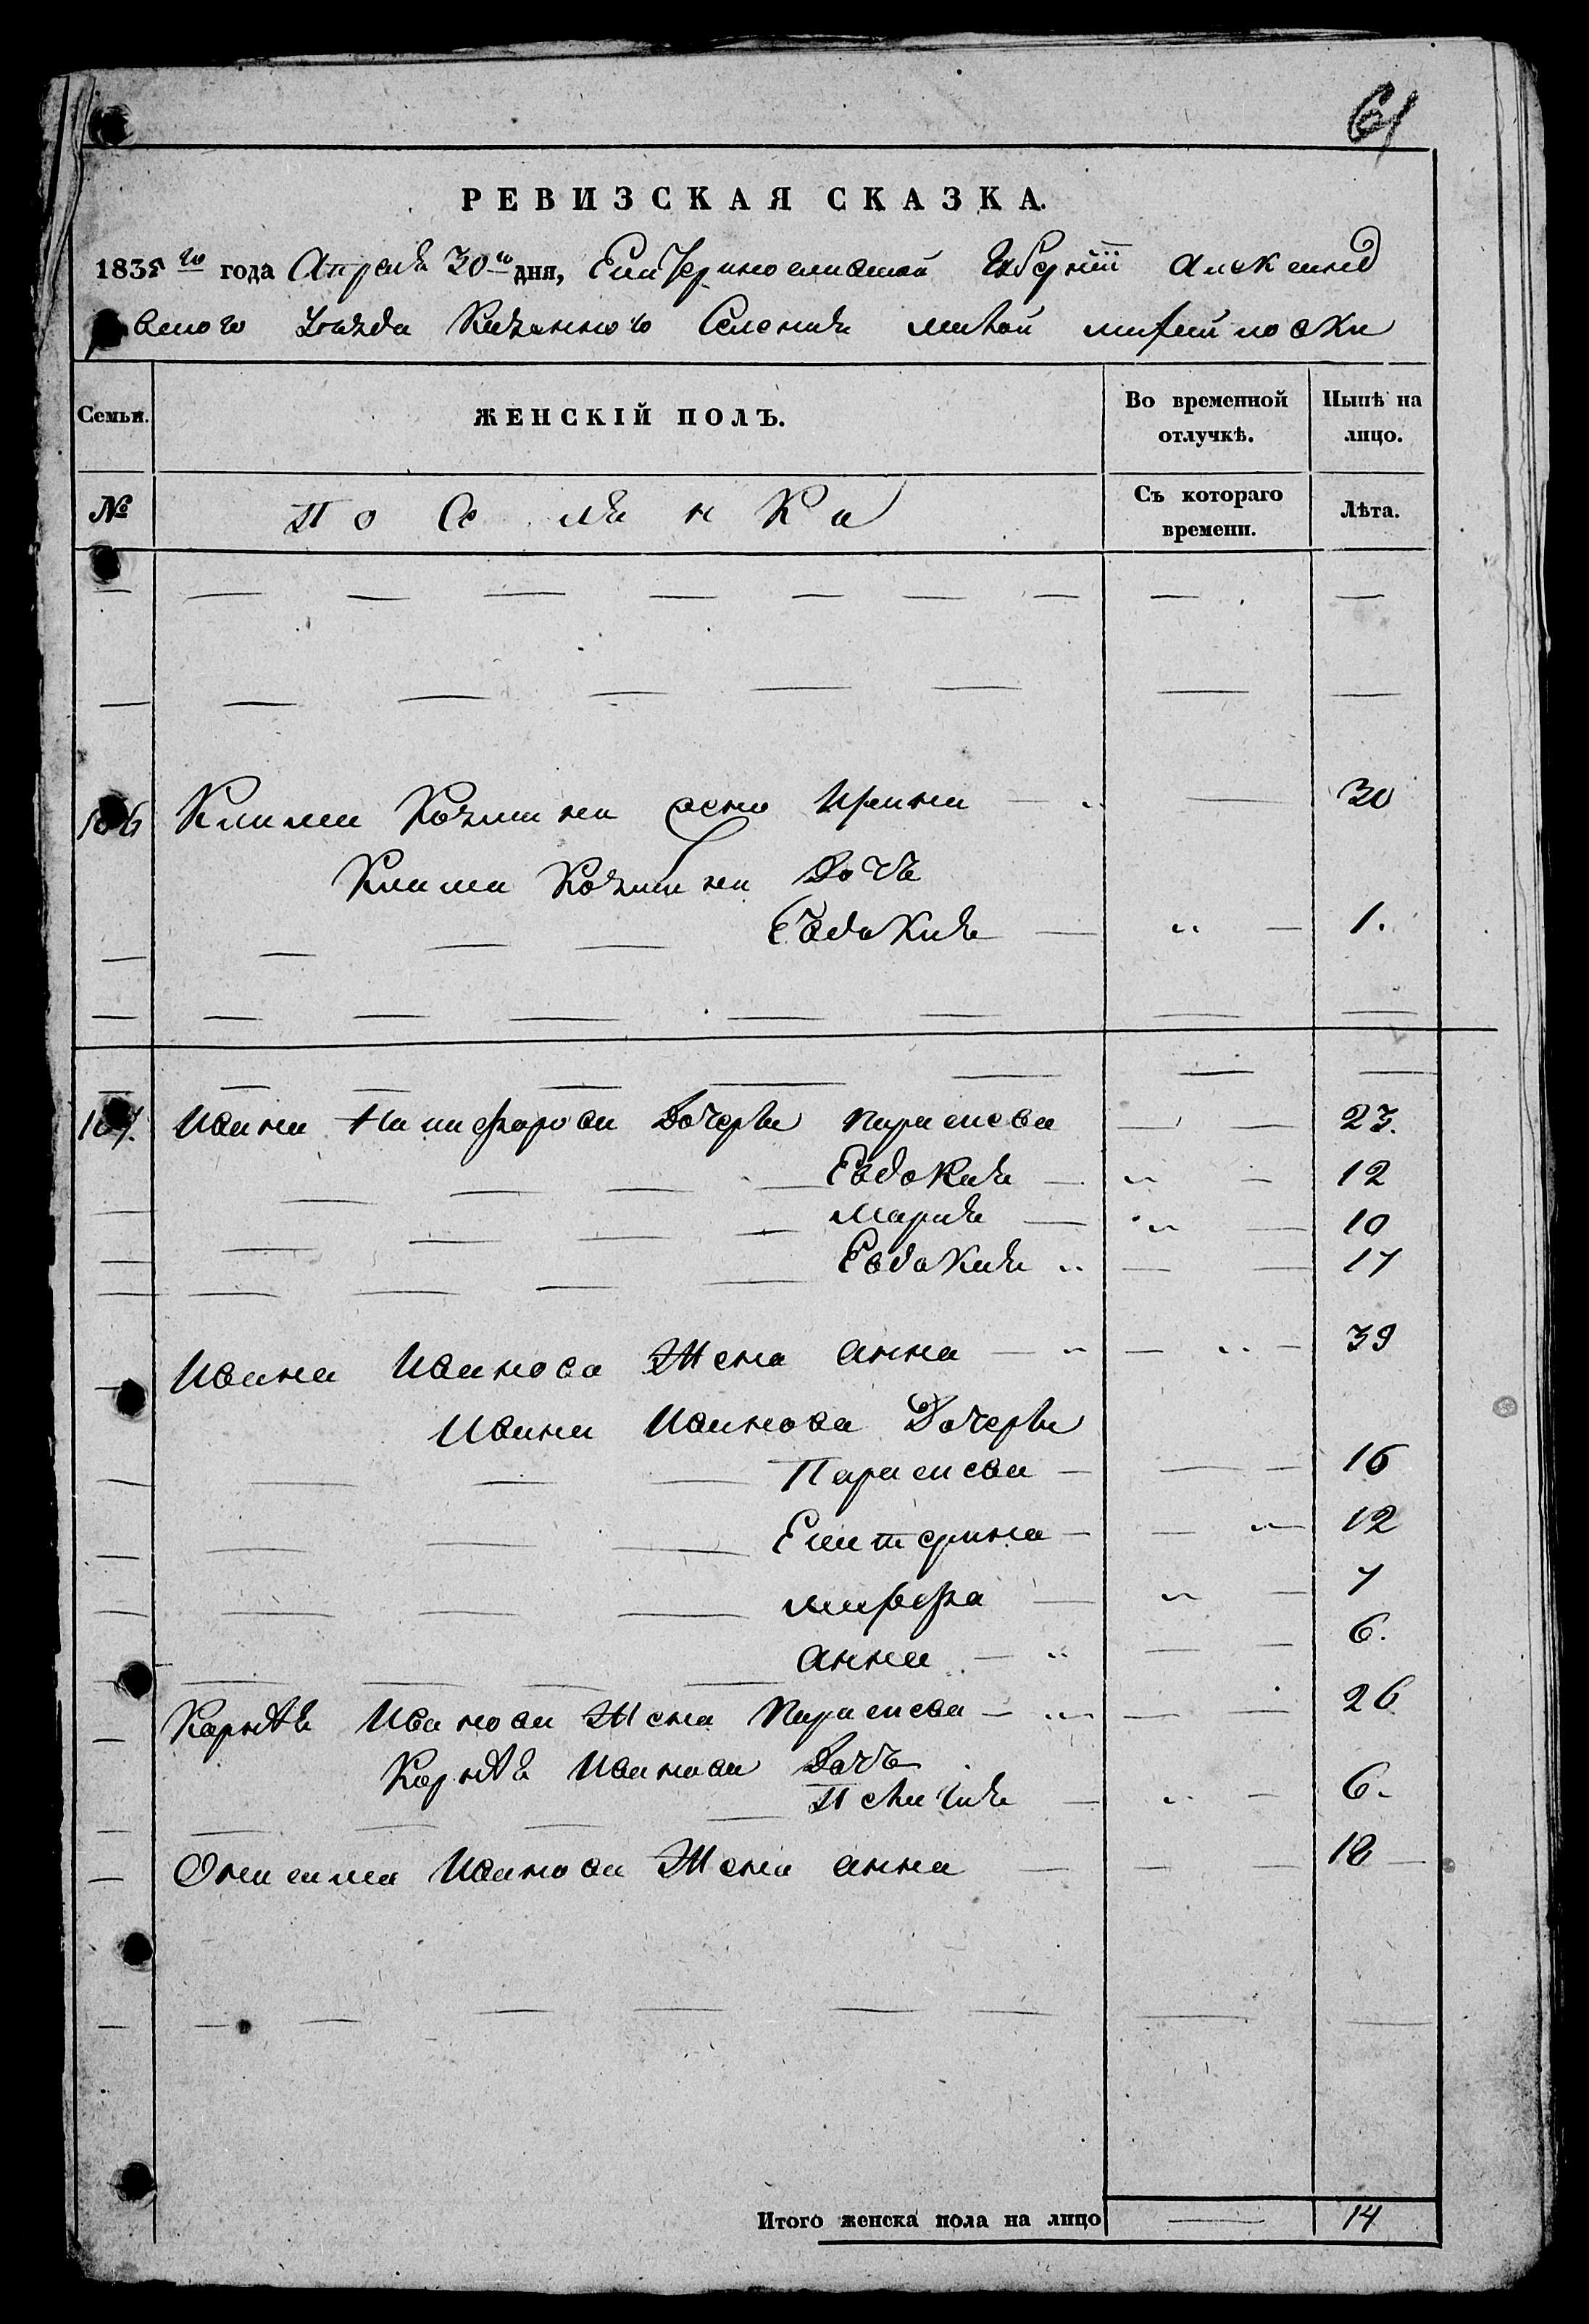 61
РЕВИЗСКАЯ СКАЗКА.
1835 го года Апреля 30 го дня, Екатеринославской Губернии Александ
вского Уезда Казенного Селения малой михайловки
Семьи. ЖЕНСКІЙ ПОЛЪ. Во временной отлучкѣ. Нынѣ на лицо.
№ Поселянка Съ котораго времени. Лѣта.
106 Клима Козмина жена Ирина 30
Клима Козмина Дочь
Евдокия 1.
107. Ивана Никифорова Дочери Параскева 23.
Евдокия 12
Мария 10
Евдокия 17
Ивана Иванова Жена Анна 39
Ивана Иванова Дочери
Параскева 16
Екатерина 12
Марфа 7
Анна 6.
Карнея Иванова Жена Параскева 26
Карнея Иванова Дочь
Пелагия 6.
Онисима Иванова Жена Анна 18
Итого женска пола на лицо 14